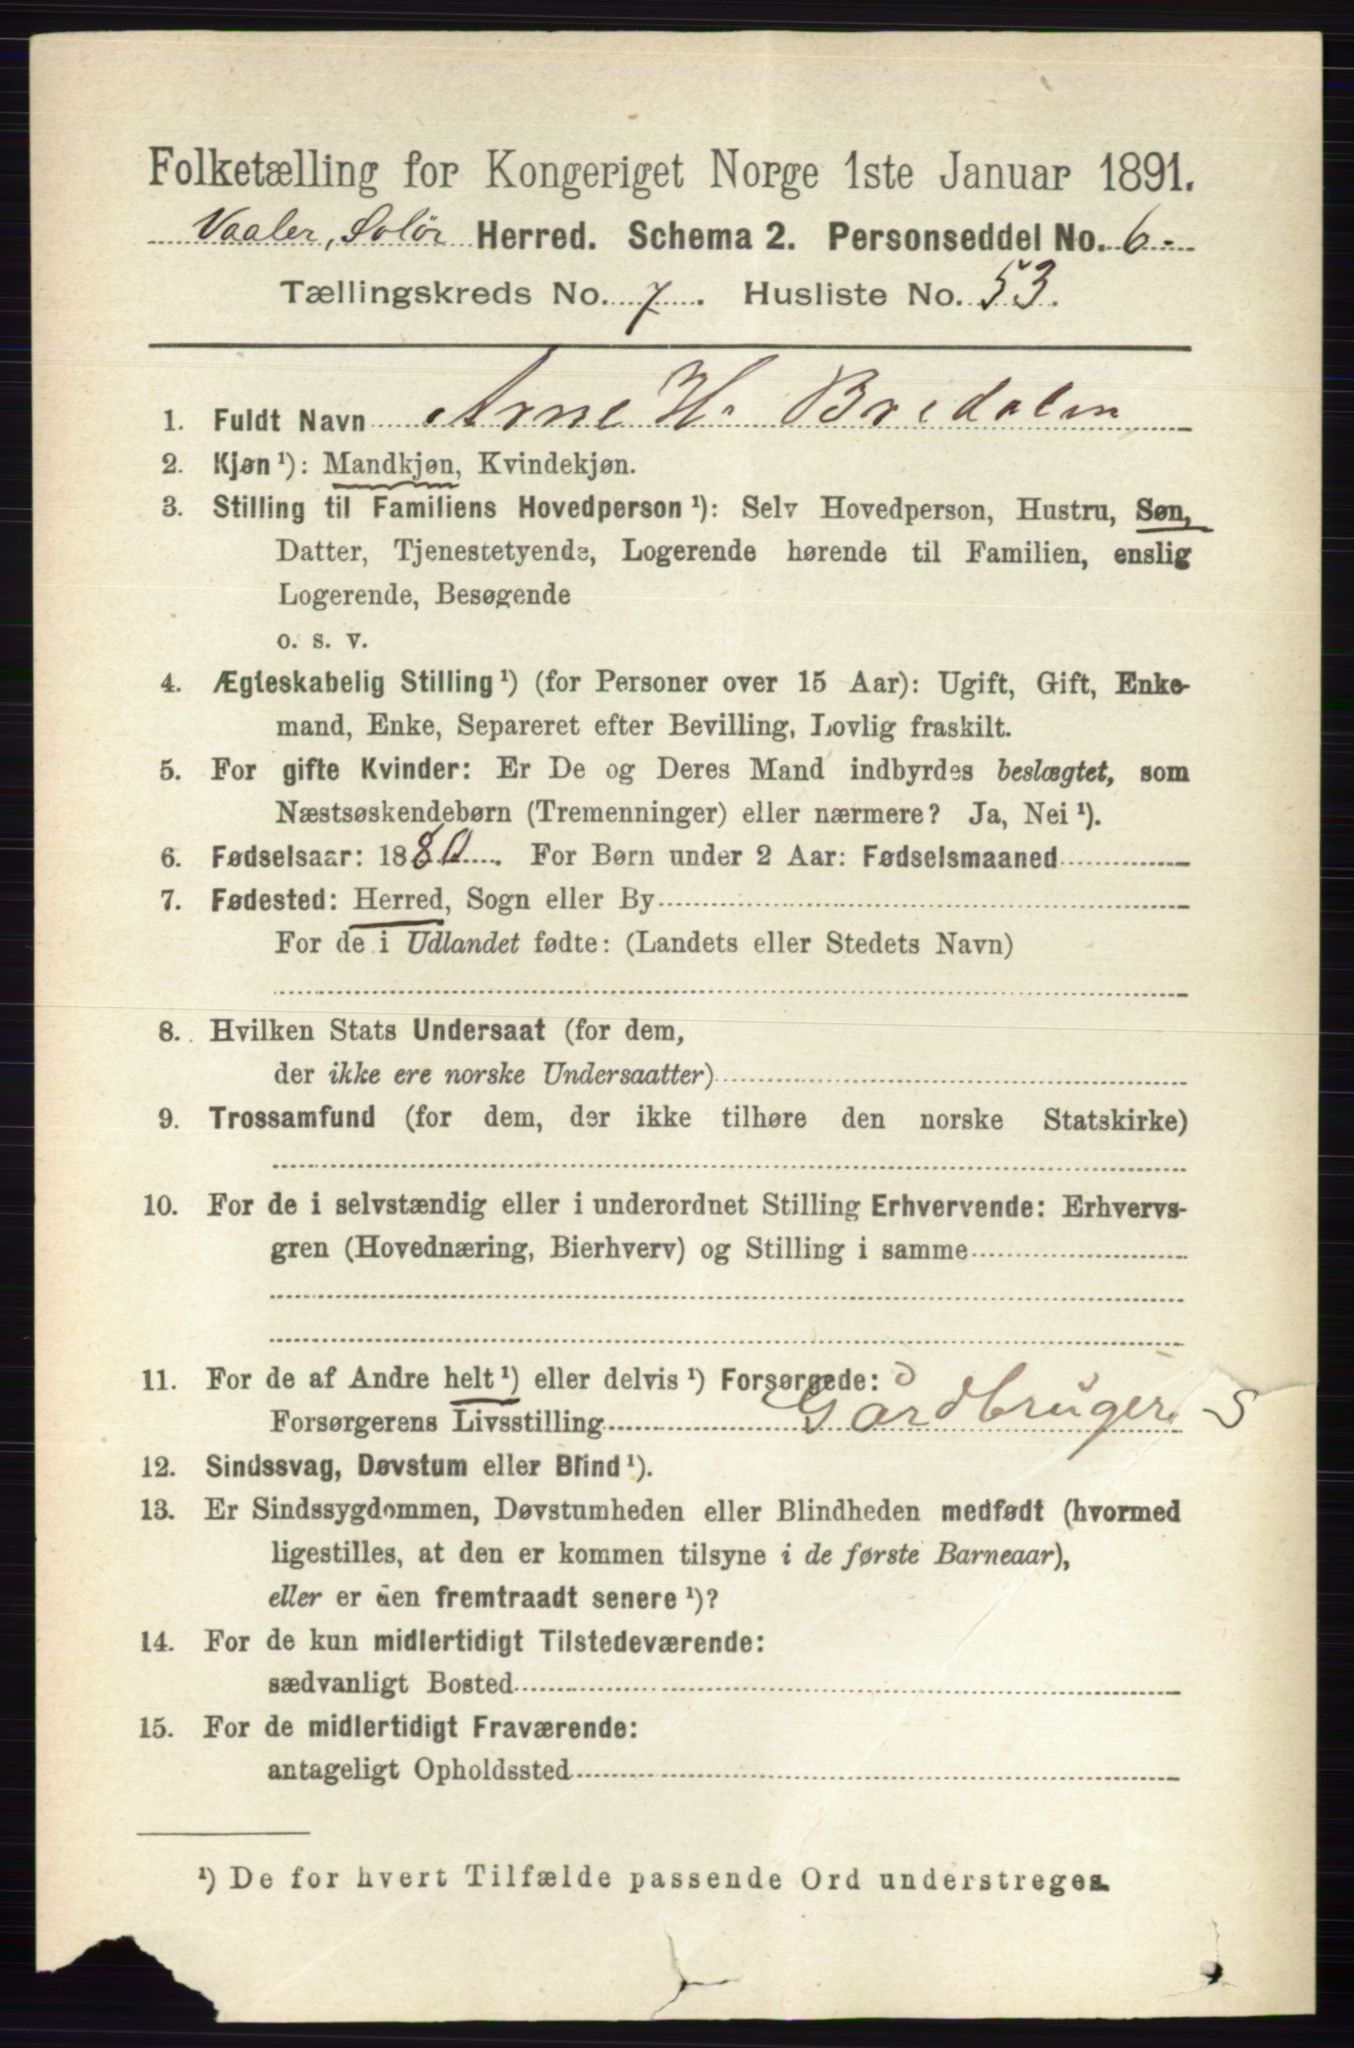 Folketælling for Kongeriget Norge 1ste Januar 1891.
Vaaler, Solør Herred. Schema 2. Personseddel No. 6.
Tællingskreds No. 7. Husliste No. 53.
1. Fuldt Navn Arne H. Bredalen
2. Kjøn ¹): Mandkjøn, Kvindekjøn.
3. Stilling til Familiens Hovedperson ¹): Selv Hovedperson, Hustru, Søn,
Datter, Tjenestetyende, Logerende hørende til Familien, enslig
Logerende, Besøgende
o. s. v.
4. Ægteskabelig Stilling ¹) (for Personer over 15 Aar): Ugift, Gift, Enke-
mand, Enke, Separeret efter Bevilling, Lovlig fraskilt.
5. For gifte Kvinder: Er De og Deres Mand indbyrdes beslægtet, som
Næstsøskendebørn (Tremenninger) eller nærmere? Ja, Nei ¹).
6. Fødselsaar: 1880. For Børn under 2 Aar: Fødselsmaaned
7. Fødested: Herred, Sogn eller By
For de i Udlandet fødte: (Landets eller Stedets Navn)
8. Hvilken Stats Undersaat (for dem,
der ikke ere norske Undersaatter)
9. Trossamfund (for dem, der ikke tilhøre den norske Statskirke)
10. For de i selvstændig eller i underordnet Stilling Erhvervende: Erhvervs-
gren (Hovednæring, Bierhverv) og Stilling i samme
11. For de af Andre helt ¹) eller delvis ¹) Forsørgede:
Forsørgerens Livsstilling Gårdbruger S
12. Sindssvag, Døvstum eller Blind ¹).
13. Er Sindssygdommen, Døvstumheden eller Blindheden medfødt (hvormed
ligestilles, at den er kommen tilsyne i de første Barneaar),
eller er den fremtraadt senere ¹)?
14. For de kun midlertidigt Tilstedeværende:
sædvanligt Bosted
15. For de midlertidigt Fraværende:
antageligt Opholdssted
¹) De for hvert Tilfælde passende Ord understreges.